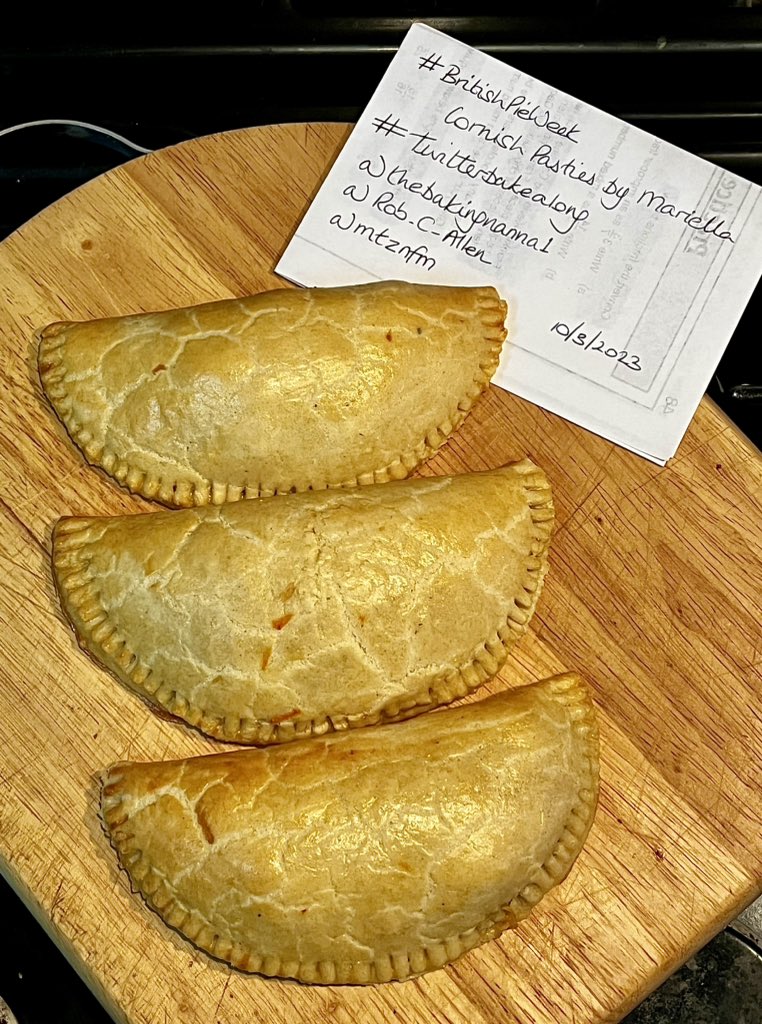 #BritishPieWeek
Cornish Pasties by Mariella
#twitterbakealong
@thebakingnanna1
@Rob_C_Allen
@mtznfm
10/3/2023